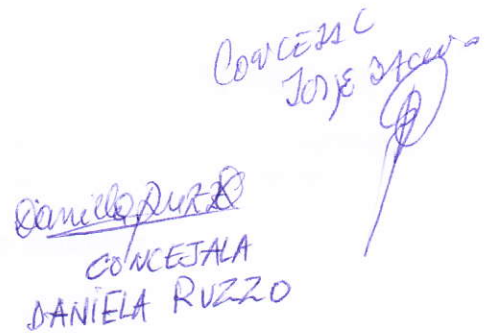 CONCEJAL
JORJE
Daniela Ruzzo
CONCEJALA
DANIELA RUZZO